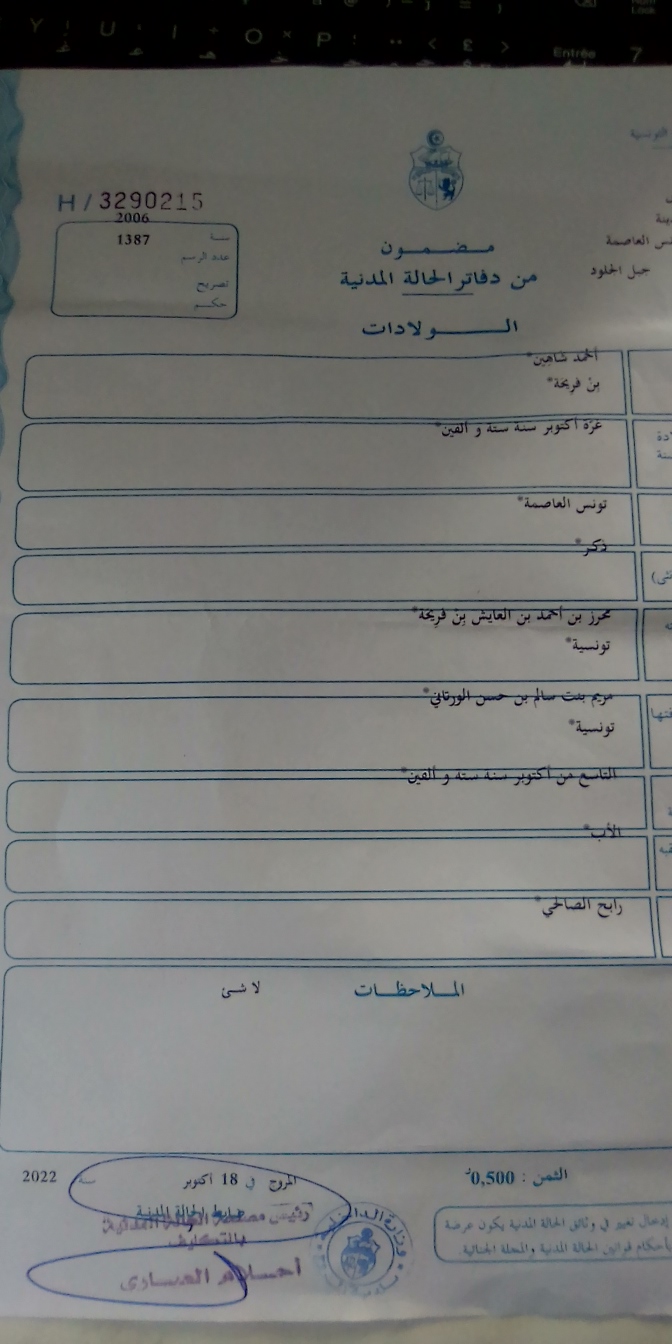 Y U I O P Entrée 7
التونسية
H / 3290215
2006
سنة
1387
عدد الرسم
تصريح
حكم
مضمون
من دفاتر الحالة المدنية
الولادات
العاصمة
جبل الجلود
أحمد شاهين*
بن فريخة*
غرة أكتوبر سنة ستة و ألفين*
تونس العاصمة*
ذكر*
محرز بن أحمد بن العايش بن فريخة*
تونسية*
مريم بنت سالم بن حسن الورتاني*
تونسية*
التاسع من أكتوبر سنة ستة و ألفين*
الأب*
رابح الصالحي*
الملاحظات
لا شئ
الثمن : 0,500د
المروج في 18 أكتوبر سنة 2022
ضابط الحالة المدنية
رئيس مصلحة الحالة المدنية
وزارة الداخلية
إدخال تغيير في وثائق الحالة المدنية يكون عرضة
بأحكام قوانين الحالة المدنية والمجلة الجنائية.